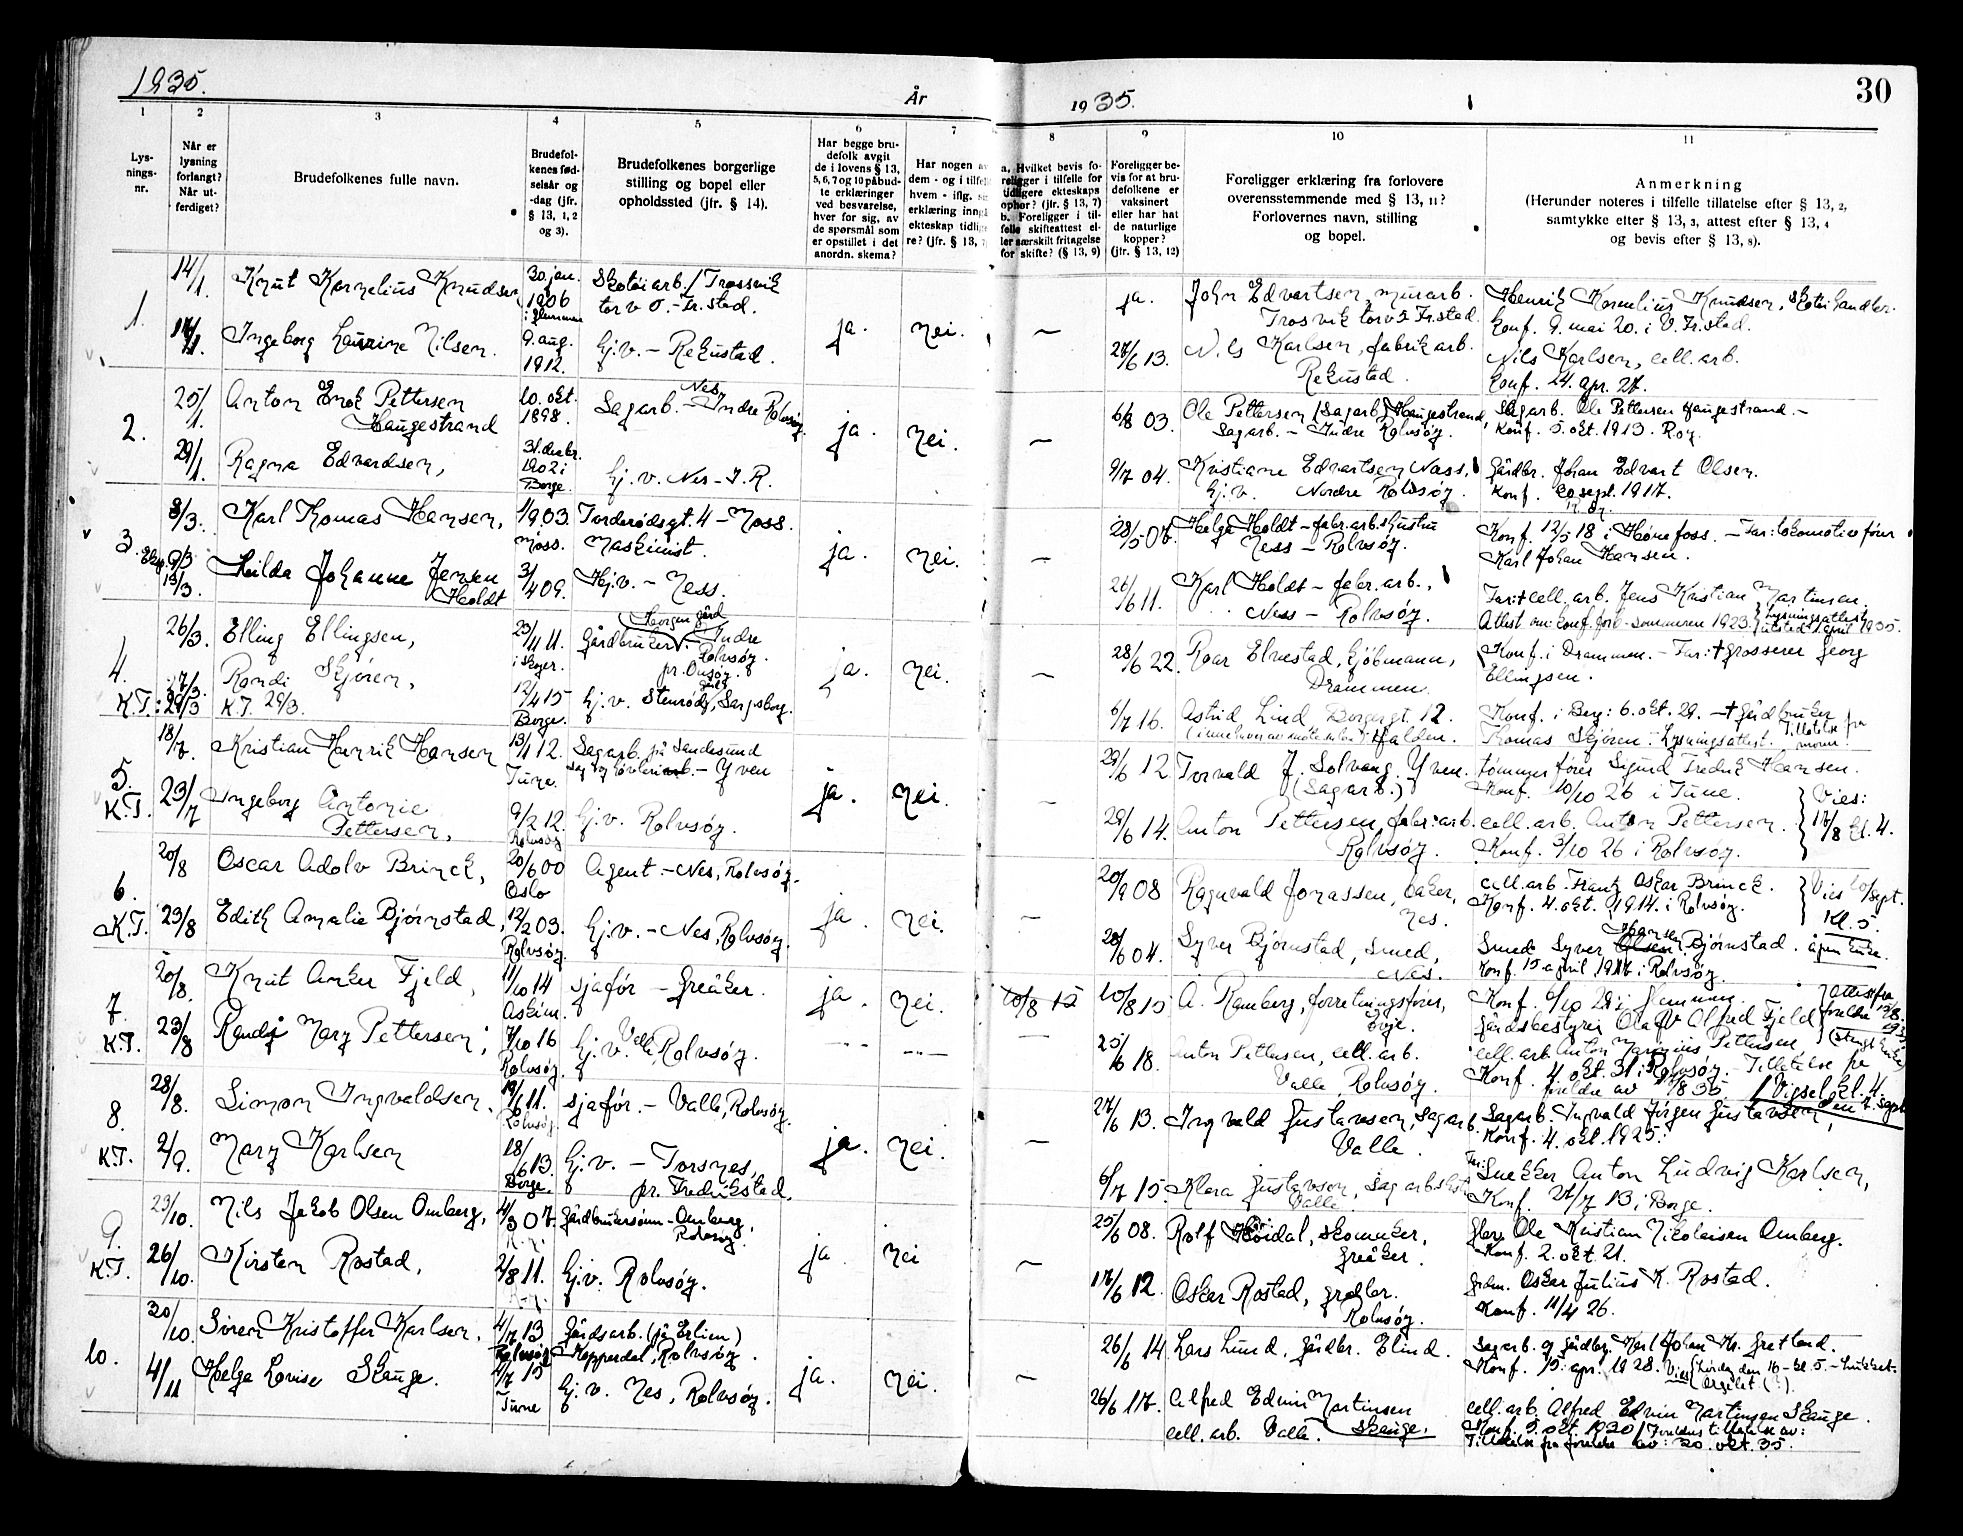 1935.
År
1935.
30
1
2
3
4
5
6
7
8
9
10
11
Lys-
nings-
nr.
Når er
lysning
forlangt?
Når ut-
ferdiget?
Brudefolkenes fulle navn.
Brudefol-
kenes fød-
selsår og
-dag (jfr.
§ 13, 1, 2
og 3).
Brudefolkenes borgerlige
stilling og bopel eller
opholdssted (jfr. § 14).
Har begge bru-
defolk avgit
de i lovens § 13,
5, 6, 7 og 10 påbud-
te erklæringer
ved besvarelse,
hver for sig, av
de spørsmål som
er opstillet i det
anordn. skema?
Har nogen av
dem - og i tilfelle
hvem - iflg. 
erklæring inngå
ekteskap tidlig
re? (jfr. § 13,
a. Hvilket bevis fo-
religger i tilfelle for
tidligere ekteskaps
ophør? (jfr. § 13, 7)
b. Foreligger i til-
felle skifteattest el-
ler særskilt fritagelse
for skifte? (§ 13, 9)
Foreligger be-
vis for at bru-
defolkene er
vaksinert
eller har hat
de naturlige
kopper?
(jfr. § 13, 12)
Foreligger erklæring fra forlovere
overensstemmende med § 13, 11?
Forlovernes navn, stilling
og bopel.
Anmerkning
(Herunder noteres i tilfelle tillatelse efter § 13, 2,
samtykke efter § 13, 3, attest efter § 13, 4
og bevis efter § 13, 8).
1.
14/1.
Knut Kornelius Knudsen
30. jan.
1906
i Glemmen
Skotøiarb. / Trossvik
torv 5. - Fr.stad.
ja.
nei.
—
ja.
John Edvartsen, murarb.
Trosvik torv 5 Fr.stad.
Henrik Kornelius Knudsen, skotøihandler.
Konf. 9. mai 20. i V. Fr.stad.
14/1.
Ingeborg Laurine Nilsen.
9. aug.
1912.
Hj.v. - Rekustad.
27/6 13.
Nils Karlsen, fabrikarb.
Rekustad.
Nils Karlsen, cell. arb.
Konf. 24. apr. 27.
2.
25/1.
Anton Enok Pettersen
Haugestrand
10. okt.
1898.
Sagarb. - Nes, Indre Rolvsøy.
ja.
nei.
—
6/8 03.
Ole Pettersen (Sagarb.) Haugestrand,
Sagarb. - Indre Rolvsøy.
Sagarb. Ole Pettersen Haugestrand. -
Konf. 5. okt. 1913. Roy.
29/1.
Ragna Edvardsen,
31. decbr.
1902 i
Borge.
Hj. v. Nes - I. R.
9/7 04.
Kristiane Edvartsen Næss,
Hj. v. Nordre Rolvsøy.
Gårdbr. Johan Edvart Olsen.
Konf. 30 sept. 1917.
3.
8/3.
Karl Thomas Hansen,
1/9 03.
Moss.
Torderødsgt. 4 - Moss.
Maskinist.
ja.
nei.
—
28/5 07.
Helga Holdt - fabr.arb.s hustru
Ness - Rolvsøy.
Konf. 12/5 18 i Hønefoss. - Far: lokomotivfører
Karl Johan Hansen.
9/3
15/3.
Hilda Johanne Jensen
Holdt
3/4 09.
Hj.v. - Ness.
26/6 11.
Karl Holdt - fabr. arb.,
Ness - Rolvsøy.
Far: † cell. arb. Jens Kristian Martinsen.
Attest om konf. forb. sommeren 1923. } Lysningsattest
utstedt 1. april 1935.
4.
26/3.
Elling Ellingsen,
23/11 11.
i Skoger.
Gårdbruker - Horgen gård
Indre
Rolvsøy.
pr. Onsøy.
ja.
nei.
—
28/6 22.
Roar Elvestad, kjøbmann,
Drammen.
Konf. i Drammen. - Far: † grosserer Georg
Ellingsen.
K.T.: 29/3
Randi Skjøren,
K.T. 29/3.
12/4 15
Borge.
Hj. v. Stenrød, Sarpsborg.
6/7 16.
Astrid Lind, Borgergt. 12.
Halden.
Konf. i Berg: 6. okt. 29. - † gårdbruker
Thomas Skjøren. Lysningsattest. Tillatelse fra
moren.
5.
K.T.
18/7.
Kristian Henrik Hansen
13/1 12.
Tune.
Sagarb. på Sandesund
sag og høvleri - Yven
ja.
nei.
—
29/6 12.
Torvald J. Solvang, Yven.
(Sagarb.)
tømmerfører Sigurd Fredrik Hansen.
Konf. 10/10 26 i Tune.
23/7
Ingeborg Antonie
Pettersen,
9/2 12.
Rolvsøy
Hj. v. Rolvsøy.
29/6 14.
Anton Pettersen, fabr. arb.
Rolvsøy.
cell. arb. Anton Pettersen.
Konf. 3/10 26 i Rolvsøy.
} Vies:
17/8 kl. 4.
6.
K.T.
20/8
Oscar Adolv Brinck,
20/6 00
Oslo
Agent. - Nes, Rolvsøy.
ja
nei.
—
20/9 08
Ragnvald Jonassen, baker,
Nes.
cell. arb. Frantz Oskar Brinck.
Konf. 4. okt. 1914. i Rolvsøy.
} Vies 20/sept.
Kl. 5.
23/8
Edith Amalie Bjørnstad,
12/2 03.
Rolvsøy.
Hj. v. - Nes, Rolvsøy.
28/6 04.
Syver Bjørnstad, Smed,
Nes.
Smed Syver Hansen Bjørnstad.
Konf. 15 april 1917. i Rolvsøy.
7.
K.T.
20/8.
Knut Anker Fjeld,
11/10 14
Askim.
sjafør - Greåker.
ja.
nei.
10/8 15
10/8 15
A. Ramberg, forretningsfører,
Konf. 6/10 29 i Glemmen.
Gårdsbestyrer Olaf Alfred Fjeld
23/8
Randi Mary Pettersen,
7/10 16
Rolvsøy.
Hj. v. Valle Rolvsøy.
—
25/6 18.
Anton Pettersen, cell. arb.
Valle, Rolvsøy.
cell. arb. Anton Marinius Pettersen
Konf. 4 okt 31 i Rolvsøy. Tillatelse fra
foreldre av 17/8 35.
8.
K.T.
28/8.
Simon Ingvaldsen.
19/6 11.
Rolvsøy.
sjafør. - Valle, Rolvsøy.
ja.
nei.
—
27/6 13.
Ingvald Gustavsen, sagarb.
Valle.
Sagarb. Ingvald Jørgen Gustavsen,
Konf. 4. okt. 1925.
Vigsel kl. 4.
den 7. sept.
2/9.
Mary Karlsen
18/6 13.
Borge.
Hj. v. - Torsnes,
pr. Fredrikstad.
6/7 15.
Klara Gustavson, sagarb.
Valle.
Far: Snekker Anton Ludvig Karlsen,
Konf. 27/7 13 i Borge.
9.
K.T.
23/10.
Nils Jakob Olsen Omberg,
4/3 07.
Gårdbrukersønn - Omberg,
Rolvsøy.
ja
nei
—
25/6 08.
Rolf Høidal, skomaker,
Greåker.
Gbr. Ole Kristian Nikolaisen Omberg.
Konf. 2. okt 21.
26/10.
Kirsten Rostad,
2/8 11.
Hj. v. Rolvsøy.
17/6 12
Oskar Rostad, grdbr.
Rolvsøy.
Grdm. Oskar Julius K. Rostad.
Konf. 11/4 26.
10.
30/10.
Søren Kristoffer Karlsen.
4/7 13
Rolvsøy
Gårdsarb. (på Erlien)
Hopperdal, Rolvsøy.
ja.
nei.
—
26/6 14
Lars Lund, gårdbr. Elind.
Sagarb. og gårdbr. Karl Johan Kr. Gretland.
Konf. 15. apr. 1928. Vies lørdag den 16 - kl. 5. -
orgelet (?).
4/11
Helga Lovise Skauge.
2/7 15
Tune
Hj. v. Nes, Rolvsøy.
26/6 17.
Alfred Edvin Martinsen
cell. arb. Valle. Skauge.
cell. arb. Alfred Edvin Martinsen Skauge.
Konf. 5. okt. 1930 /
Tillatelse fra foreldre av: 30. okt. 35.